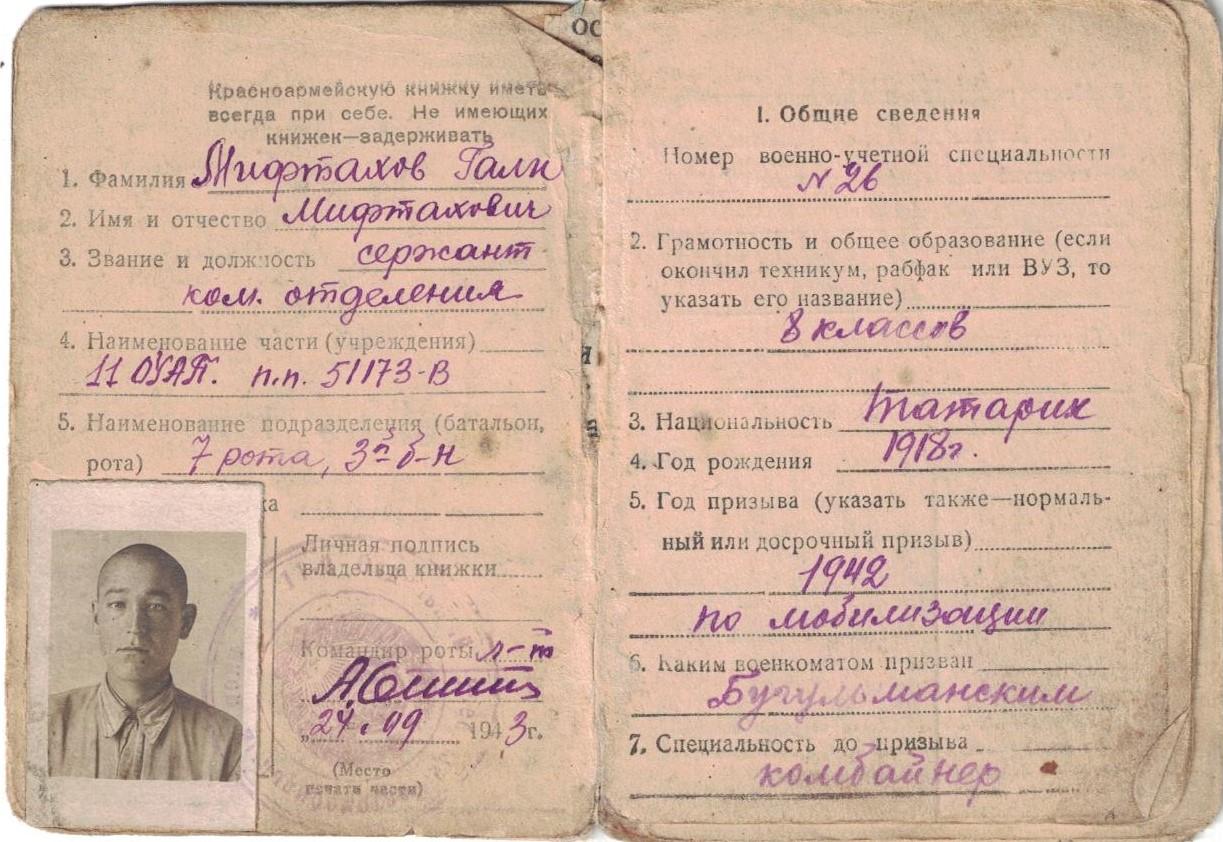 Красноармейскую книжку иметь
всегда при себе. Не имеющих
книжек—задерживать
1. Фамилия Мифтахов Гали
2. Имя и отчество Мифтахович
3. Звание и должность сержант
ком. отделения
4. Наименование части (учреждения)
11 ОУАП. п.п. 51173-В
5. Наименование подразделения (батальон,
рота) 7 рота, 3й б-н
ка
Личная подпись
владельца книжки
Командир роты л-т
1943г.
(Место
печати части)
ОС
I. Общие сведения
Номер военно-учетной специальности
N 26
2. Грамотность и общее образование (если
окончил техникум, рабфак или ВУЗ, то
указать его название)
8 классов
3. Национальность татарин
4. Год рождения 1918г.
5. Год призыва (указать также—нормаль-
ный или досрочный призыв)
1942
по мобилизации
6. Каким военкоматом призван
Бугульманским
7. Специальность до призыва
комбайнер